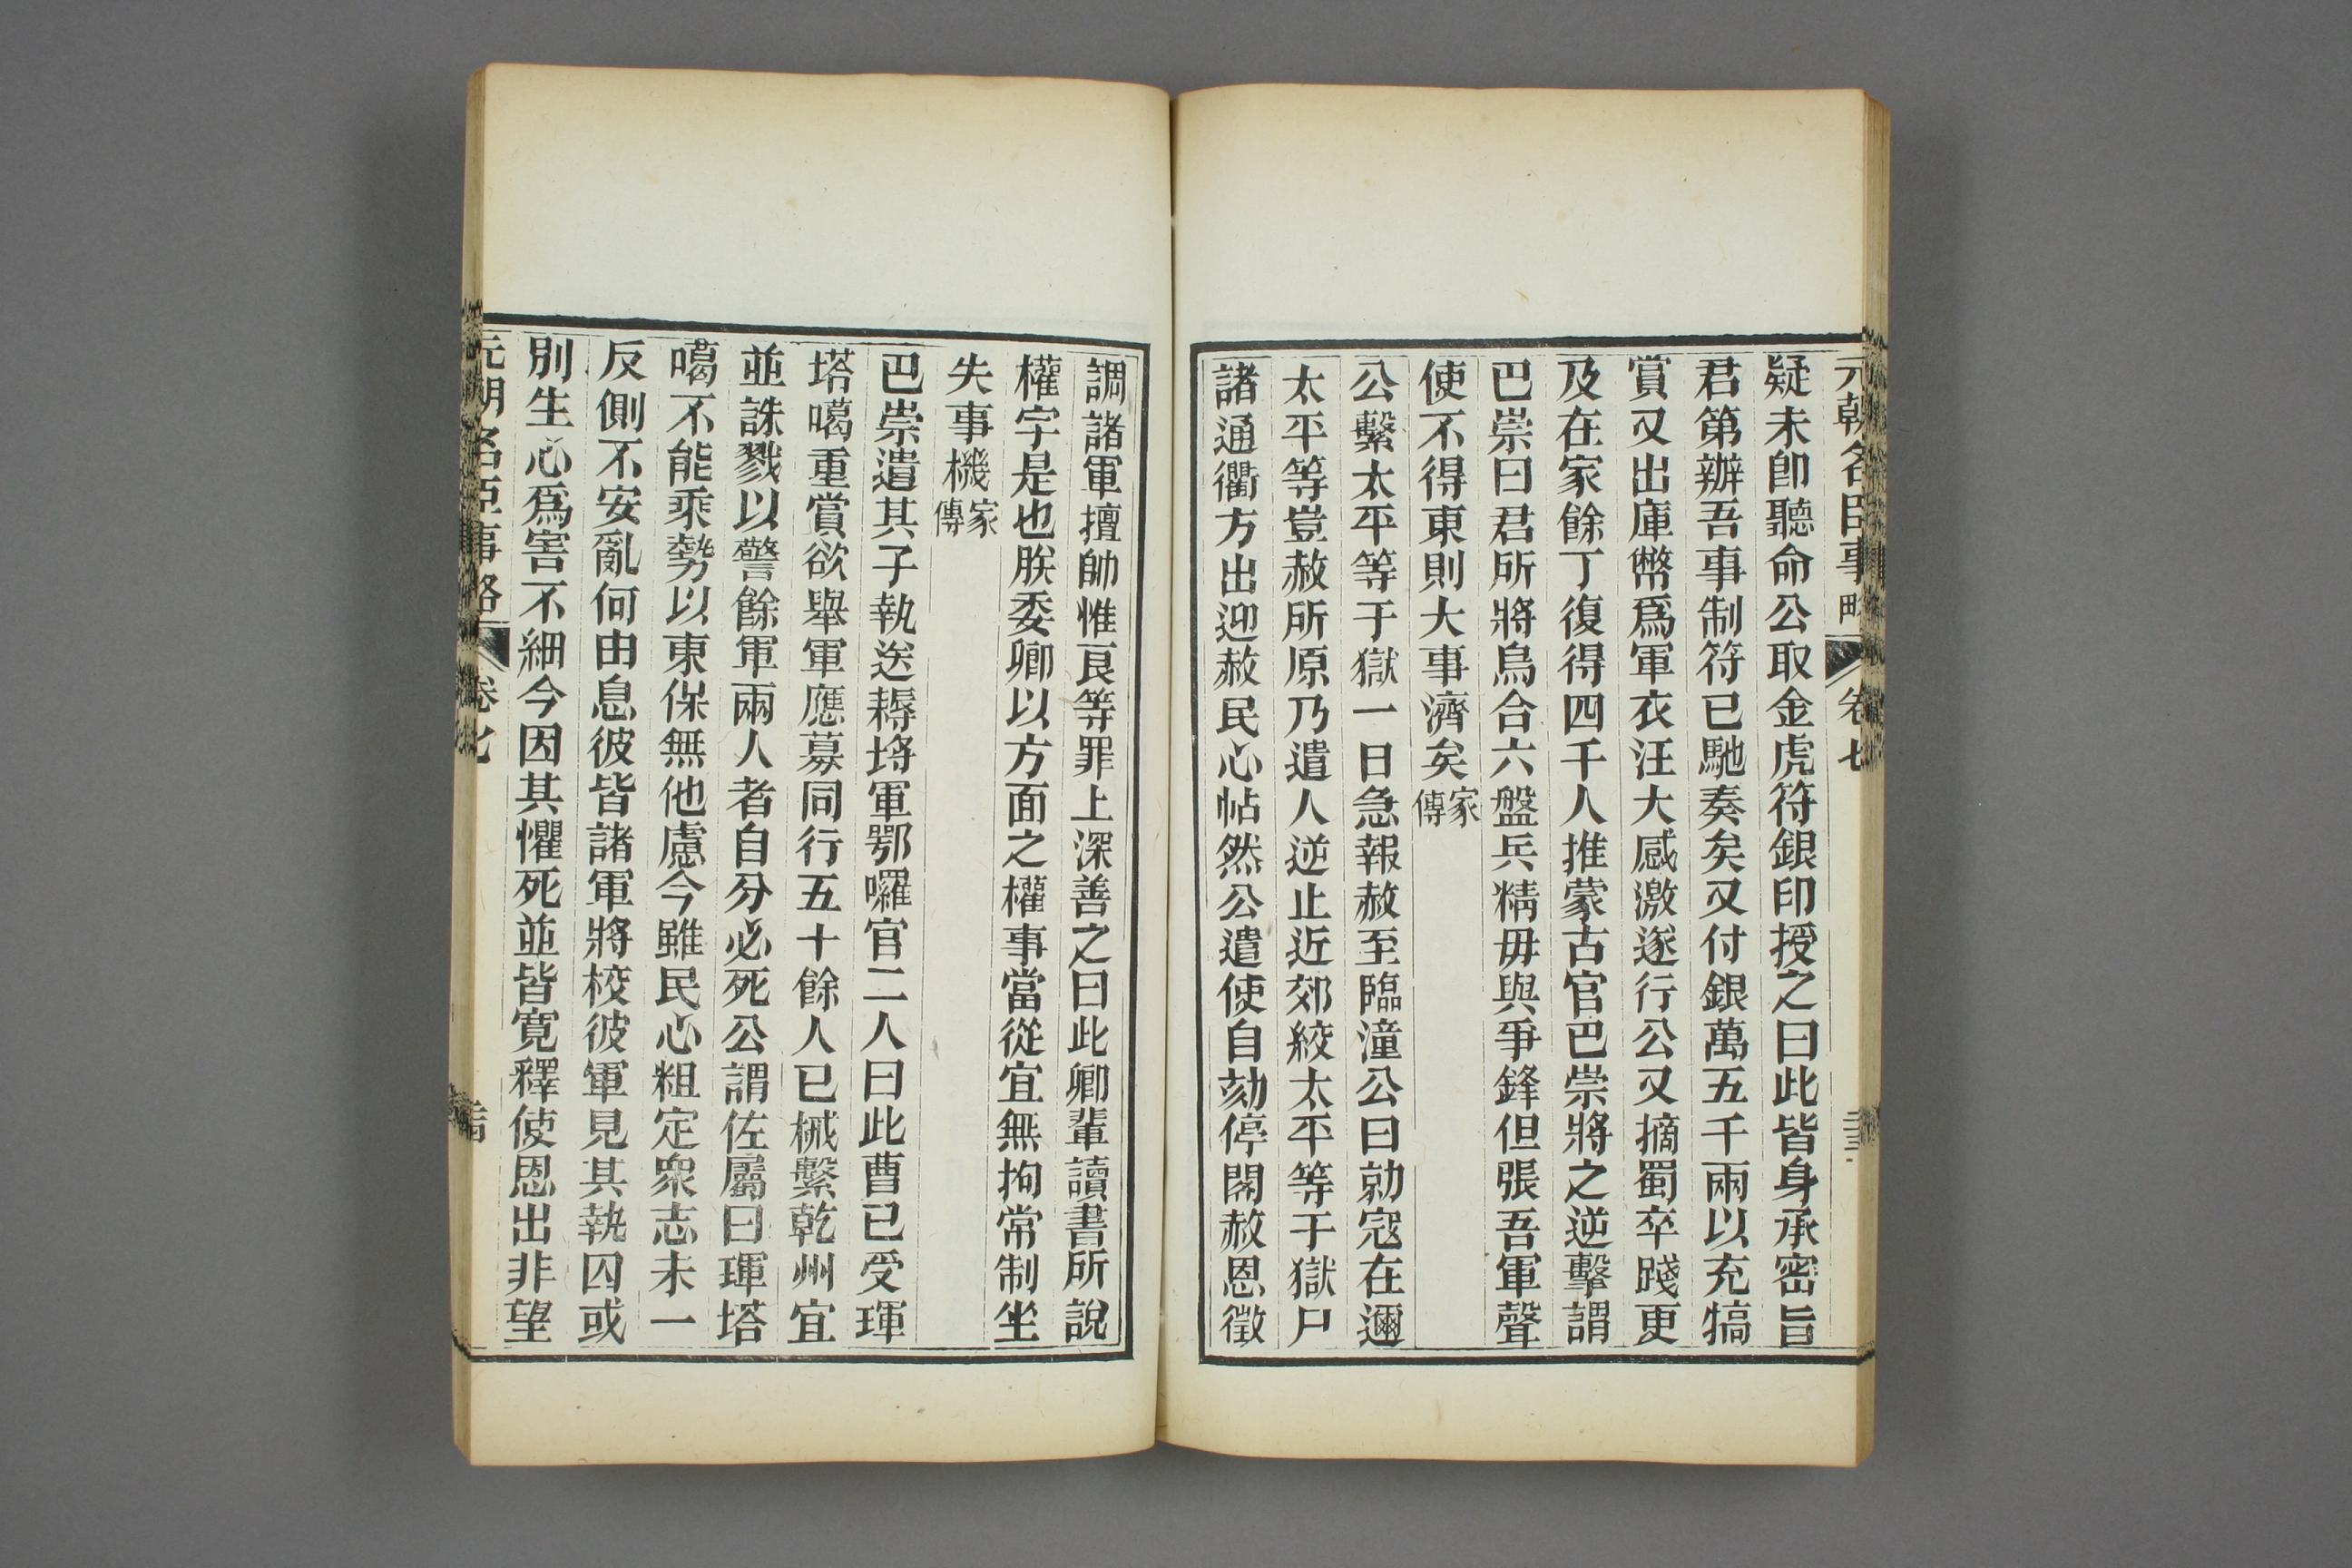 元朝名臣事略 卷七
疑未卽聽命公取金虎符銀印授之曰此皆身承密旨
君第辦吾事制符已馳奏矣又付銀萬五千兩以充犒
賞又出庫幣爲軍衣汪大感激遂行公又摘蜀卒踐更
及在家餘丁復得四千人推蒙古官巴崇將之逆擊謂
巴崇曰君所將烏合六盤兵精毋與爭鋒但張吾軍聲
使不得東則大事濟矣家傳
公繫太平等于獄一日急報赦至臨潼公曰勍寇在邇
太平等豈赦所原乃遣人逆止近郊絞太平等于獄尸
諸通衢方出迎赦民心帖然公遣使自劾停閣赦恩徵
調諸軍擅帥惟良等罪上深善之曰此卿輩讀書所說
權字是也朕委卿以方面之權事當從宜無拘常制坐
失事機家傳
巴崇遣其子執送耨埒軍鄂囉官二人曰此曹已受琿
塔噶重賞欲舉軍應募同行五十餘人已械繫乾州宜
並誅戮以警餘軍兩人者自分必死公謂佐屬曰琿塔
噶不能乘勢以東保無他慮今雖民心粗定衆志未一
反側不安亂何由息彼皆諸軍將校彼軍見其執囚或
別生心爲害不細今因其懼死並皆寬釋使恩出非望
元朝名臣事略 卷七